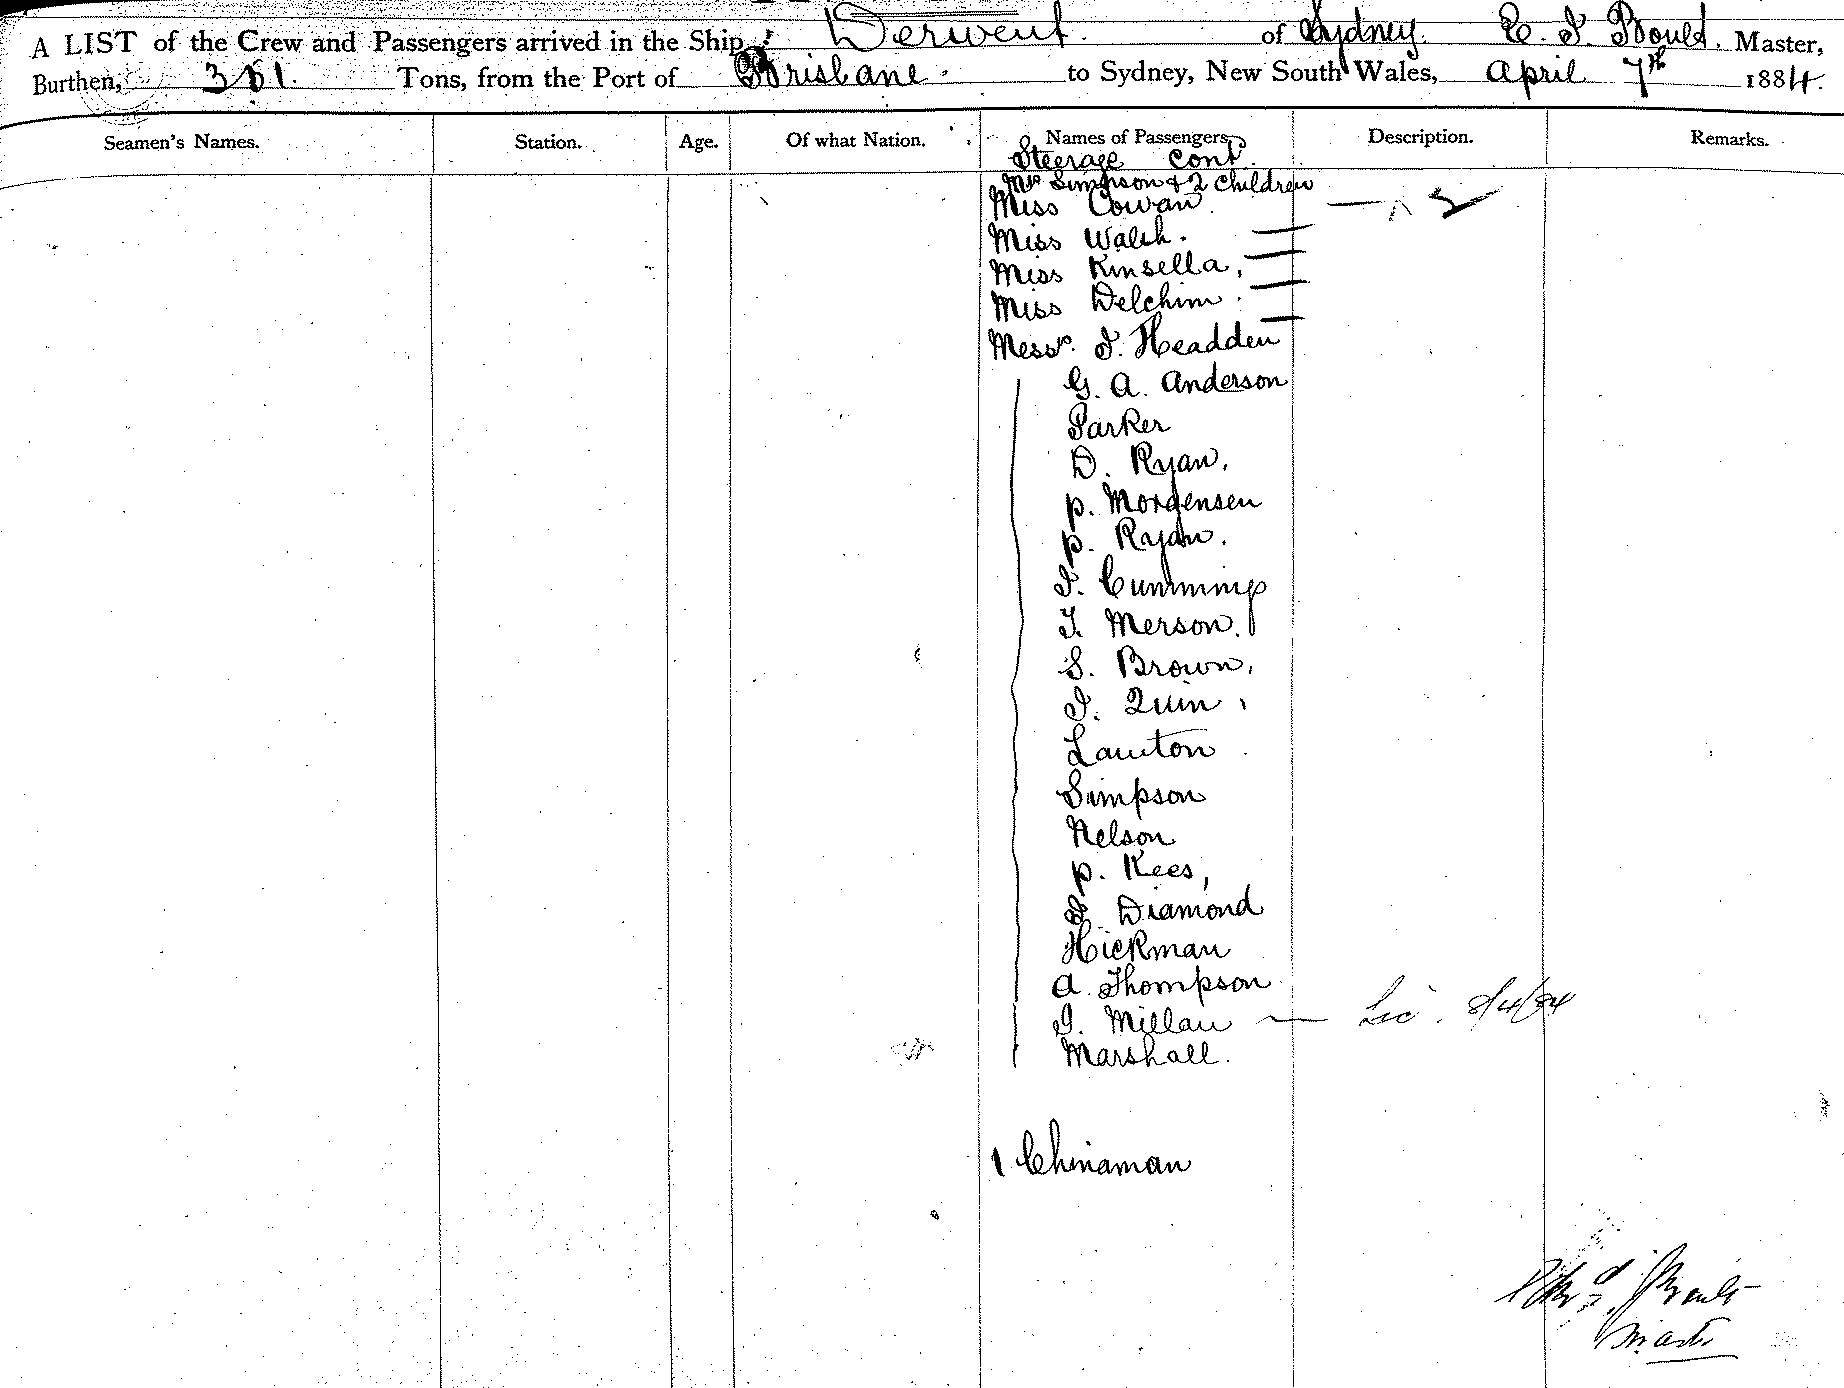 A LIST of the Crew and Passengers arrived in the Ship Derwent. of Sydney. E. J. Boult. Master,
Burthen, 361. Tons, from the Port of Brisbane. to Sydney, New South Wales, April 7th 1884.
Seamen's Names. Station. Age. Of what Nation. Names of Passengers Description. Remarks.
Steerage Cont.
Mrs Simpson & 2 Children
Miss Cowan
Miss Walsh.
Miss Kinsella,
Miss Delchim.
Messrs. J. Headden
G. A. Anderson
Parker
D. Ryan.
P. Morgensen
P. Ryan.
J. Cummings
T. Merson.
S. Brown.
J. Quin
Lawton
Simpson
Nelson
P. Kees,
Diamond
Hickman
A. Thompson
J. Millan — Lic. 8/4/84
Marshall.
1 Chinaman
Boult
Master